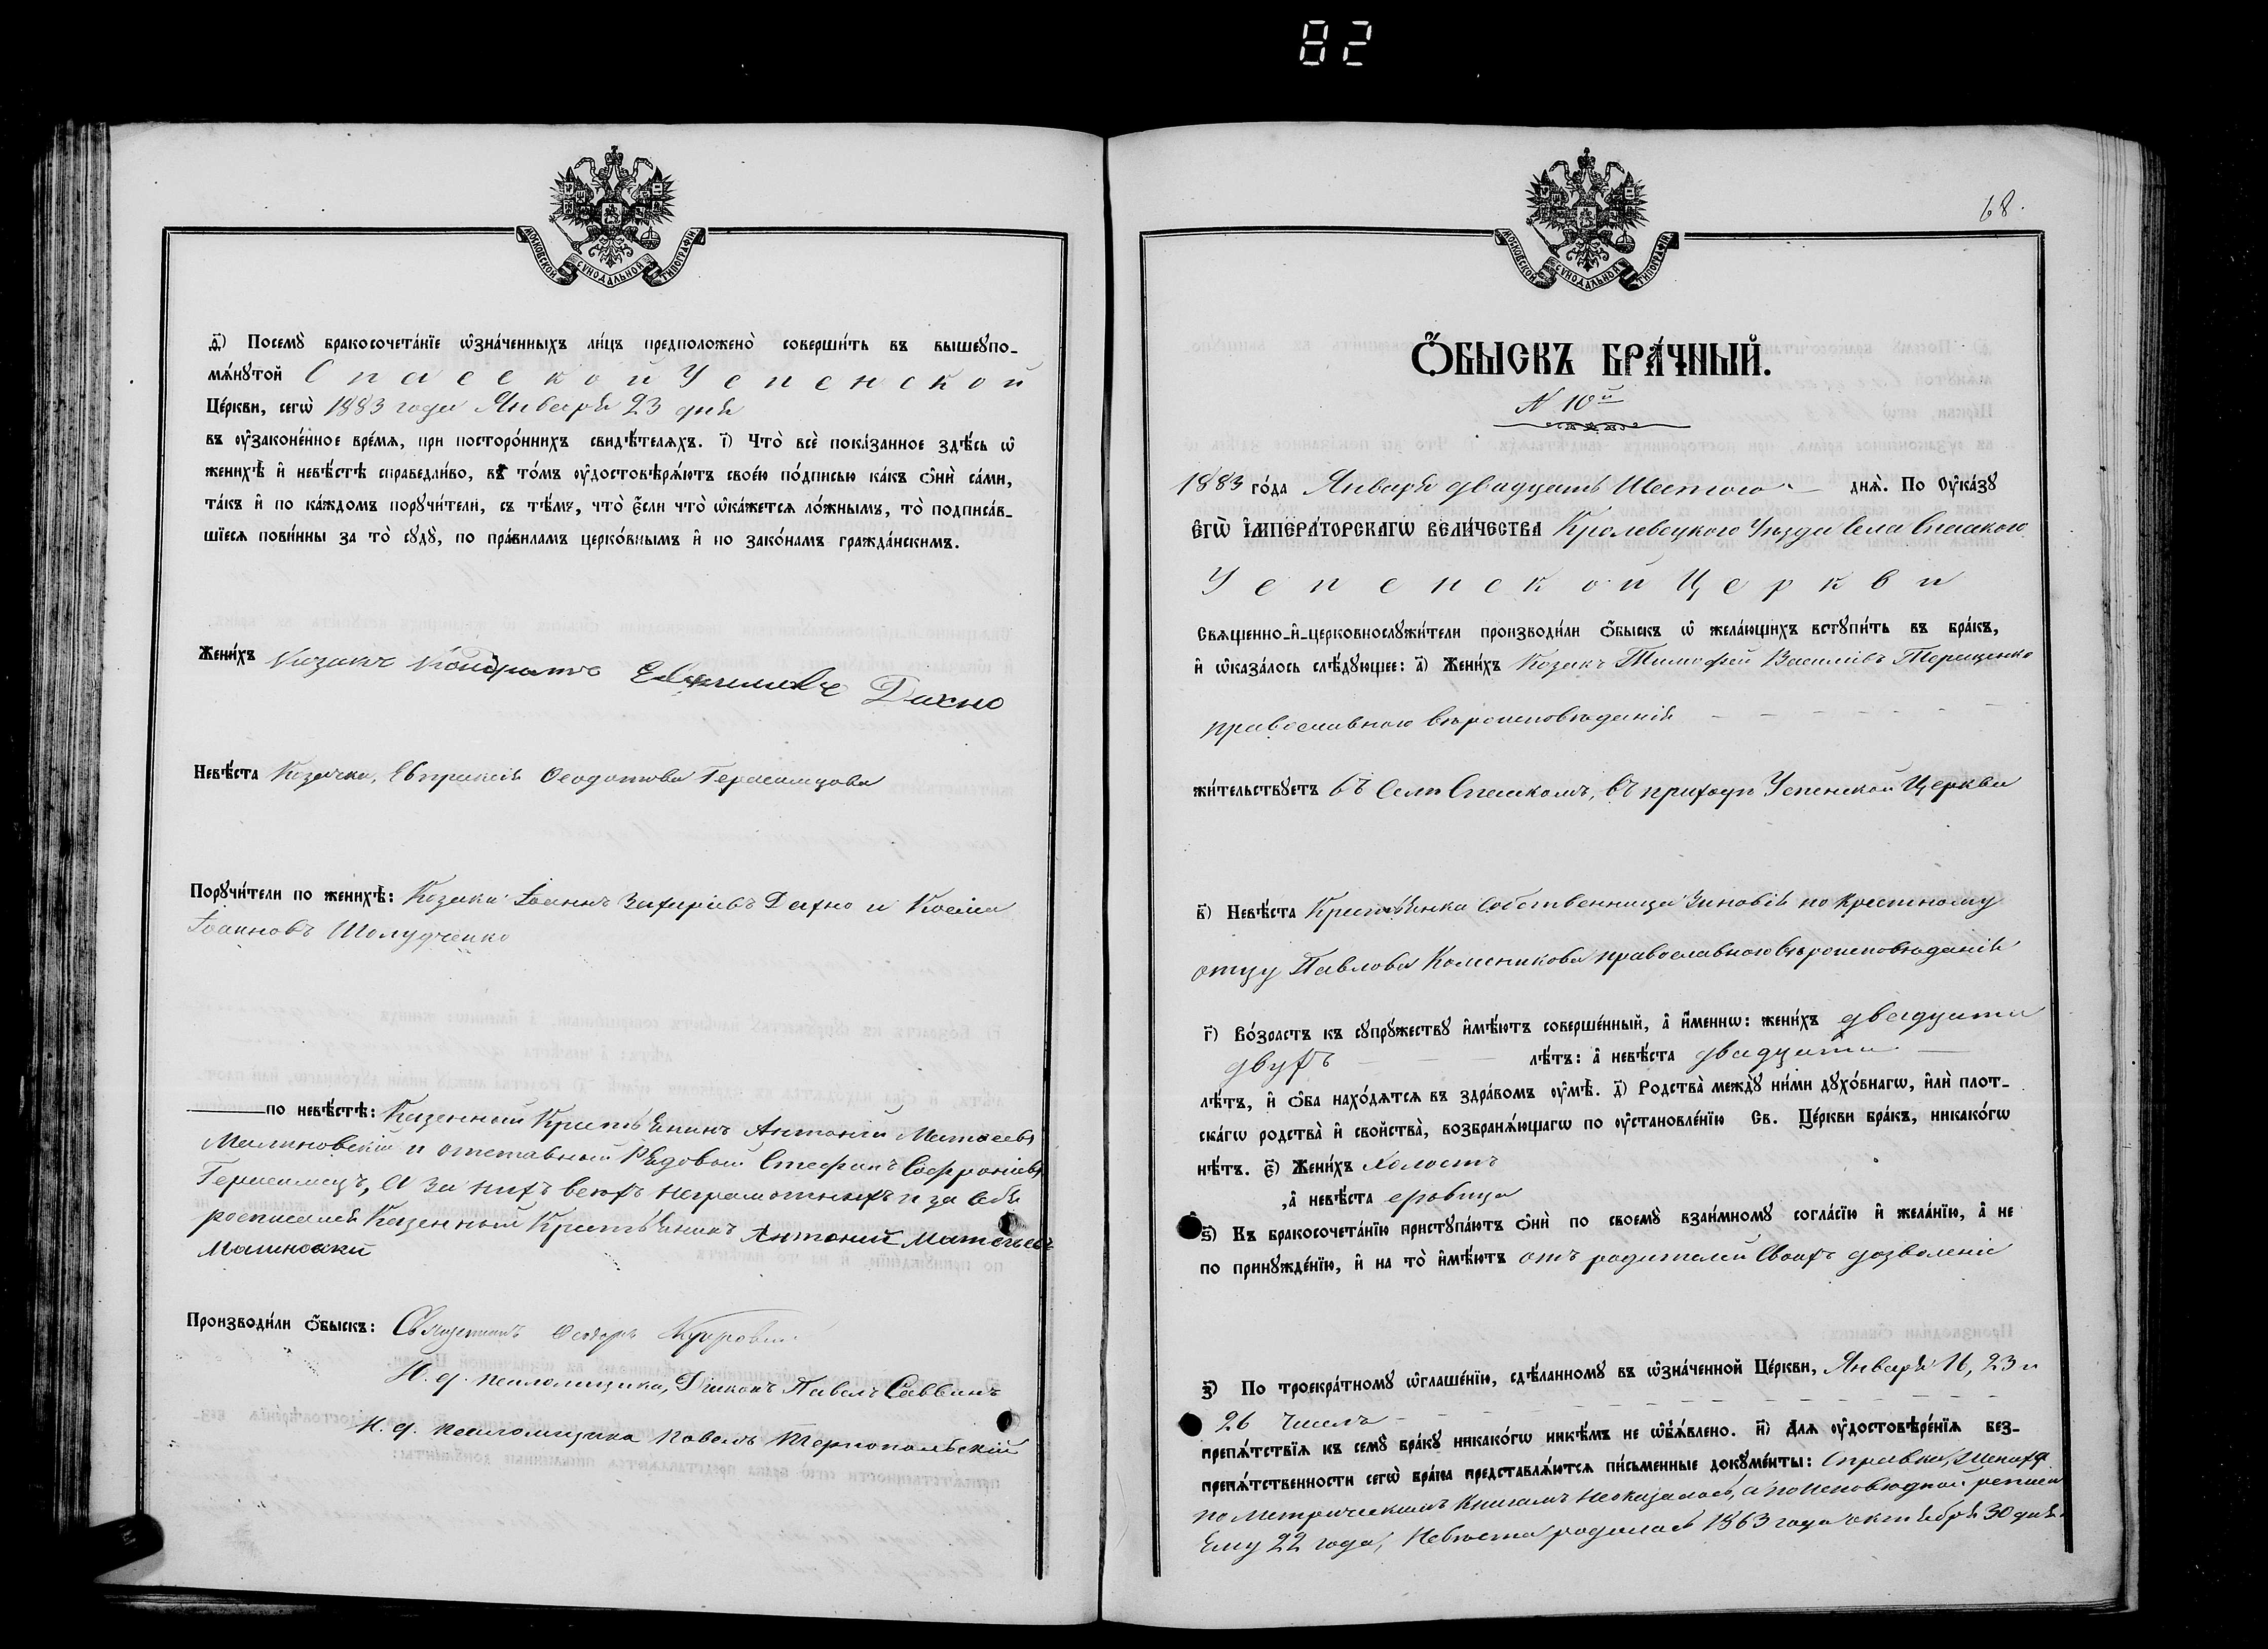 82
МОСКОВСКОЙ СѴНОДАЛЬНОЙ ТИПОГРАФІИ
ѳ҃) Посемꙋ̀ бракосочета́нїе ѡ҆зна́ченныхъ ли́цъ предположено̀ соверши́ть въ вышеꙋпо-
мѧ́нꙋтой Спасской Успенской
Це́ркви, сегѡ̀ 1883 года Января 23 дня
въ ᲂу҆законе́нное вре́мѧ, при посторо́ннихъ свидѣ́телѧхъ. і҃) Что̀ всѐ пока́занное здѣ́сь ѡ҆
женихѣ̀ и҆ невѣ́стѣ справедли́во, въ то́мъ ᲂу҆достовѣрѧ́ютъ свое́ю по́дписью ка́къ ѻ҆нѝ са́ми,
та́къ и҆ по ка́ждомъ порꙋчи́тели, съ тѣ́мъ, что̀ є҆́сли что̀ ѡ҆ка́жется ло́жнымъ, то̀ подписа́в-
шїесѧ пови́нны за то̀ сꙋдꙋ̀, по пра́виламъ церко́внымъ и҆ по зако́намъ гражда́нскимъ.
Жени́хъ Козакъ Кондратъ Евфимовъ Дахно
Невѣ́ста Козачка, Евпраксія Ѳеодотова Герасимцова
Порꙋчи́тели по женихѣ̀: Козаки Іоаннъ Захаріевъ Дахно и Косма
Іоанновъ Шолудченко
по невѣ́стѣ: Казенный Крестьянинъ Антоній Матѳеевъ
Малиновскій и отставный Рядовой Стефанъ Софроніевъ
Герасимецъ, а за нихъ всехъ неграмотныхъ и за себя
росписался Казенный Крестьянинъ Антоний Матвеевъ
Малиновски
Производи́ли ѻ҆́быскъ: Священникъ Ѳеодоръ
И. д. псаломщика, Діаконъ Павелъ Саввинъ
И. д. псаломщика Павелъ Тернопольскій
68.
МОСКОВСКОЙ СѴНОДАЛЬНОЙ ТИПОГРАФІИ
Ѻ҆́БЫСКЪ БРА́ЧНЫЙ.
N 10й
1883 го́да Января двадцать Шестого днѧ̀. По Оу҆ка́зꙋ
Є҆ГѠ̀ И҆МПЕРА́ТОРСКАГѠ ВЕЛИ́ЧЕСТВА Кролевецкого Уезда Села Спаского
Успенской Церкви
Свѧще́нно-и҆-церковнослꙋжи́тели производи́ли ѻ҆́быскъ ѡ҆ жела́ющихъ встꙋпи́ть въ бра́къ,
и҆ ѡ҆каза́лось слѣ́дꙋющее: а҃) Жени́хъ Козакъ Тимофей Василіевъ Терещенко
православного вѣроисповѣданія
жи́тельствꙋетъ въ Селѣ Спаскомъ, въ приходѣ Успенской Церкви
в҃) Невѣ́ста Крестьянка собственница Зиновія по крестному
отцу Павлова Колесникова православного вѣроисповѣданія
г҃) Во́зрастъ къ сꙋпрꙋ́жествꙋ и҆мѣ́ютъ соверше́нный, а҆ и҆́меннѡ: жени́хъ двадцати
двухъ лѣ́тъ: а҆ невѣ́ста двадцати
лѣ́тъ, и҆ ѻ҆́ба нахо́дѧтсѧ въ здра́вомъ ᲂу҆мѣ̀. д҃) Родства̀ междꙋ̀ ни́ми дꙋхо́внагѡ, и҆лѝ пло́т-
скагѡ родства̀ и҆ сво́йства̀, возбранѧ́ющагѡ по ᲂу҆становле́нїю Св. Це́ркви бра́къ, никако́гѡ
нѣ́тъ. є҃) Жени́хъ холостъ
, а҆ невѣ́ста
ѕ҃) Къ бракосочета́нїю пристꙋпа́ютъ ѻ҆нѝ по своемꙋ̀ взаи́мномꙋ согла́сїю и҆ жела́нїю, а҆ не
по принꙋжде́нїю, и҆ на то̀ и҆мѣ́ютъ отъ родителей своихъ дозволеніе
з҃) По троекра́тномꙋ ѡ҆глаше́нїю, сдѣ́ланномꙋ въ ѡ҆зна́ченной Це́ркви, Января 16, 23 и
26 чиселъ
препѧ́тствїѧ къ семꙋ̀ бра́кꙋ никако́гѡ никѣ́мъ не ѡ҆б̾ѧ́влено. и҃) Длѧ ᲂу҆достовѣре́нїѧ без-
препѧ́тственности сегѡ̀ бра́ка представлѧ́ютсѧ пи́сьменные докꙋме́нты: Справка,
по метрическимъ книгамъ неоказалось, а по исповѣдной росписи
Ему 22 года, Невѣста родилась 1863 года октября 30 дня.